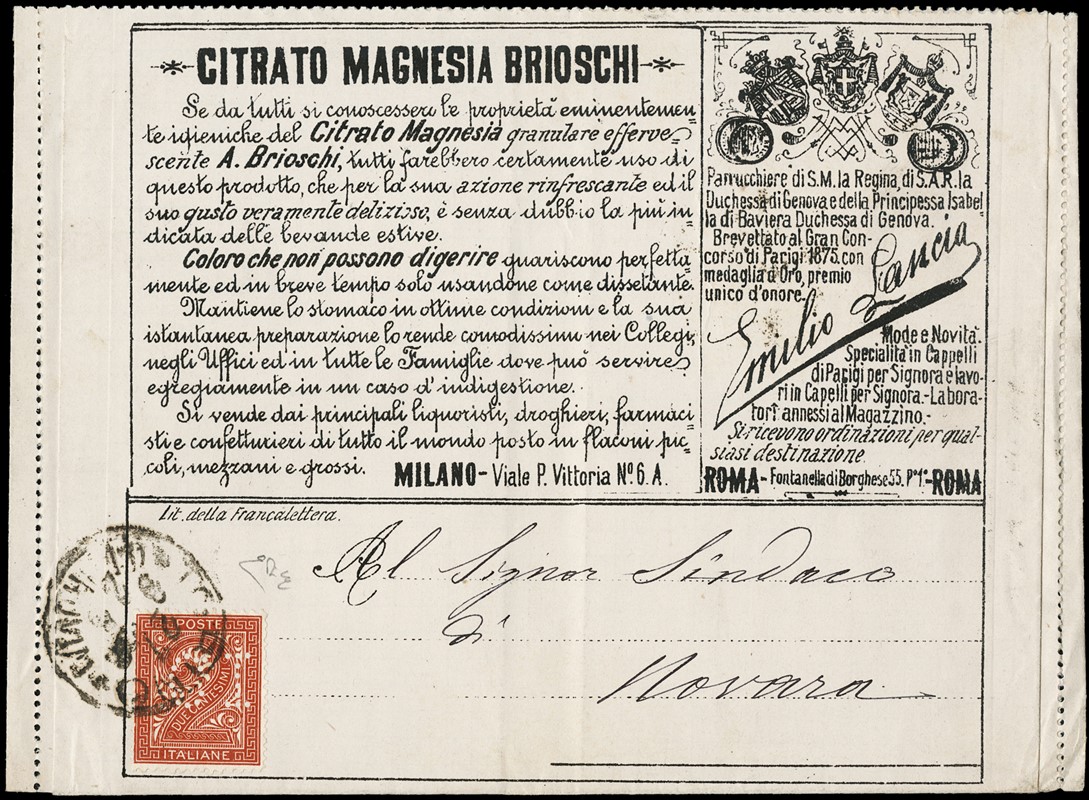 CITRATO MAGNESIA BRIOSCHI
Se da tutti si conoscesseru le proprietà eminentemen
te igieniche del Citrato Magnesia granulare efferve
scente A. Brioschi, tutti farebbero certamente uso di
questo prodotto, che per la sua azione rinfrescante ed il
suo gusto veramente delizioso, è senza dubbio la più in
dicata delle bevande estive.
Coloro che non possono digerire guariscono perfetta
mente ed in breve tempo solo usandone come dissetante.
Mantiene lo stomaco in ottime condizioni e la sua
istantanea preparazione lo rende comodissimo nei Collegi,
negli Uffici ed in tutte le Famiglie dove può servire
egregiamente in un caso d'indigestione.
Si vende dai principali liquoristi, droghieri, farmaci
sti e confetturieri di tutto il mondo posto in flaconi pic
coli, mezzani e grossi. MILANO - Viale P. Vittoria Nº 6. A.
Parrucchiere di S.M. la Regina, di S.A.R. la
Duchessa di Genova e della Principessa Isabel
la di Baviera Duchessa di Genova.
Brevettato al Gran Con-
corso di Parigi 1875. con
medaglia d'Oro, premio
unico d'onore.
Emilio Lancia
Mode e Novità.
Specialità in Cappelli
di Parigi per Signora e lavo-
ri in Capelli per Signora. - Labora-
tori annessi al Magazzino. -
Si ricevono ordinazioni per qual-
siasi destinazione.
ROMA - Fontanella di Borghese 55. Pº 1º - ROMA
Lit. della Francalettera.
Al Signor Sindaco
di
Novara
POSTE
DUE CENTESIMI
2
ITALIANE